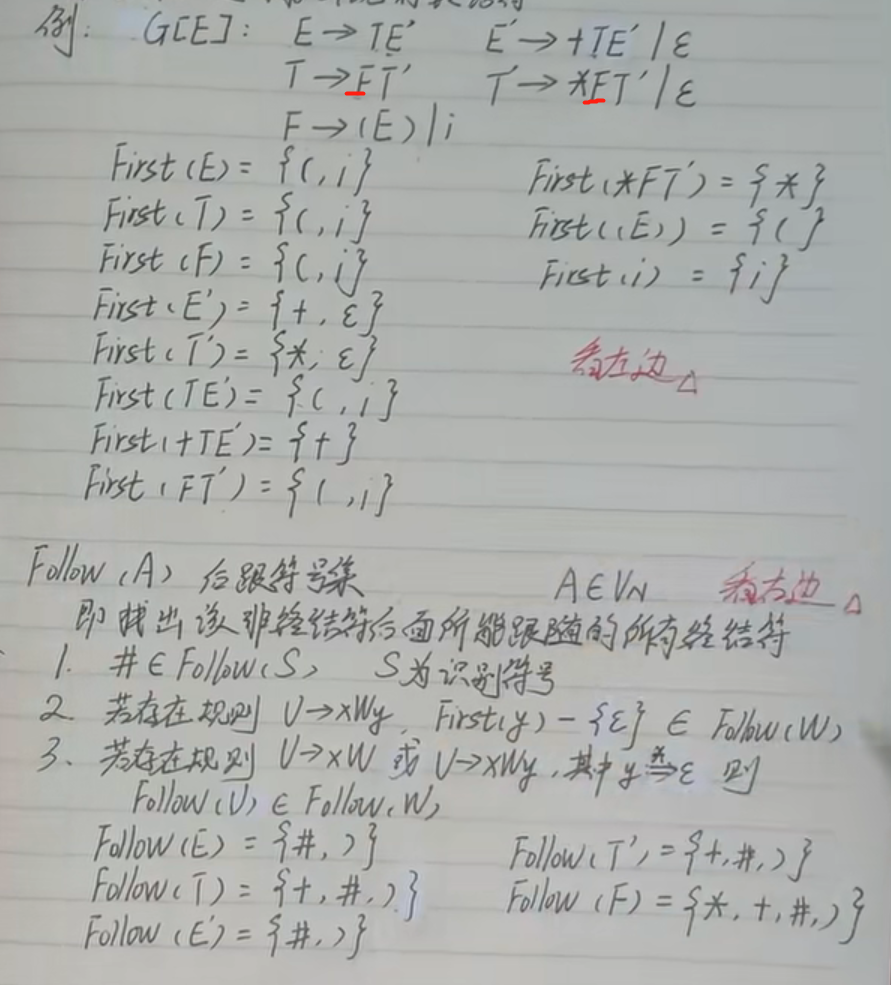 例: G[E]: E→TE' E'→+TE'/ε
T→FT' T'→*FT'/ε
F→(E)/i
First(E)={(,i} First(*FT')={*}
First(T)={(,i} First((E))={(}
First(F)={(,i} First(i)={i}
First(E')={+,ε}
First(T')={*,ε} 看左边△
First(TE')={(,i}
First(+TE')={+}
First(FT')={(,i}
Follow(A) 后跟符号集 A∈VN 看右边△
即找出该非终结符后面所能跟随的所有终结符
1. #∈Follow(S) S为识别符号
2. 若存在规则 U→xWy, First(y)-{ε}∈Follow(W)
3、若存在规则 U→xW 或 U→xWy,其中y*⇒ε 则
Follow(U)∈Follow(W)
Follow(E)={#,)} Follow(T')={+,#,)}
Follow(T)={+,#,)} Follow(F)={*,+,#,)}
Follow(E')={#,)}